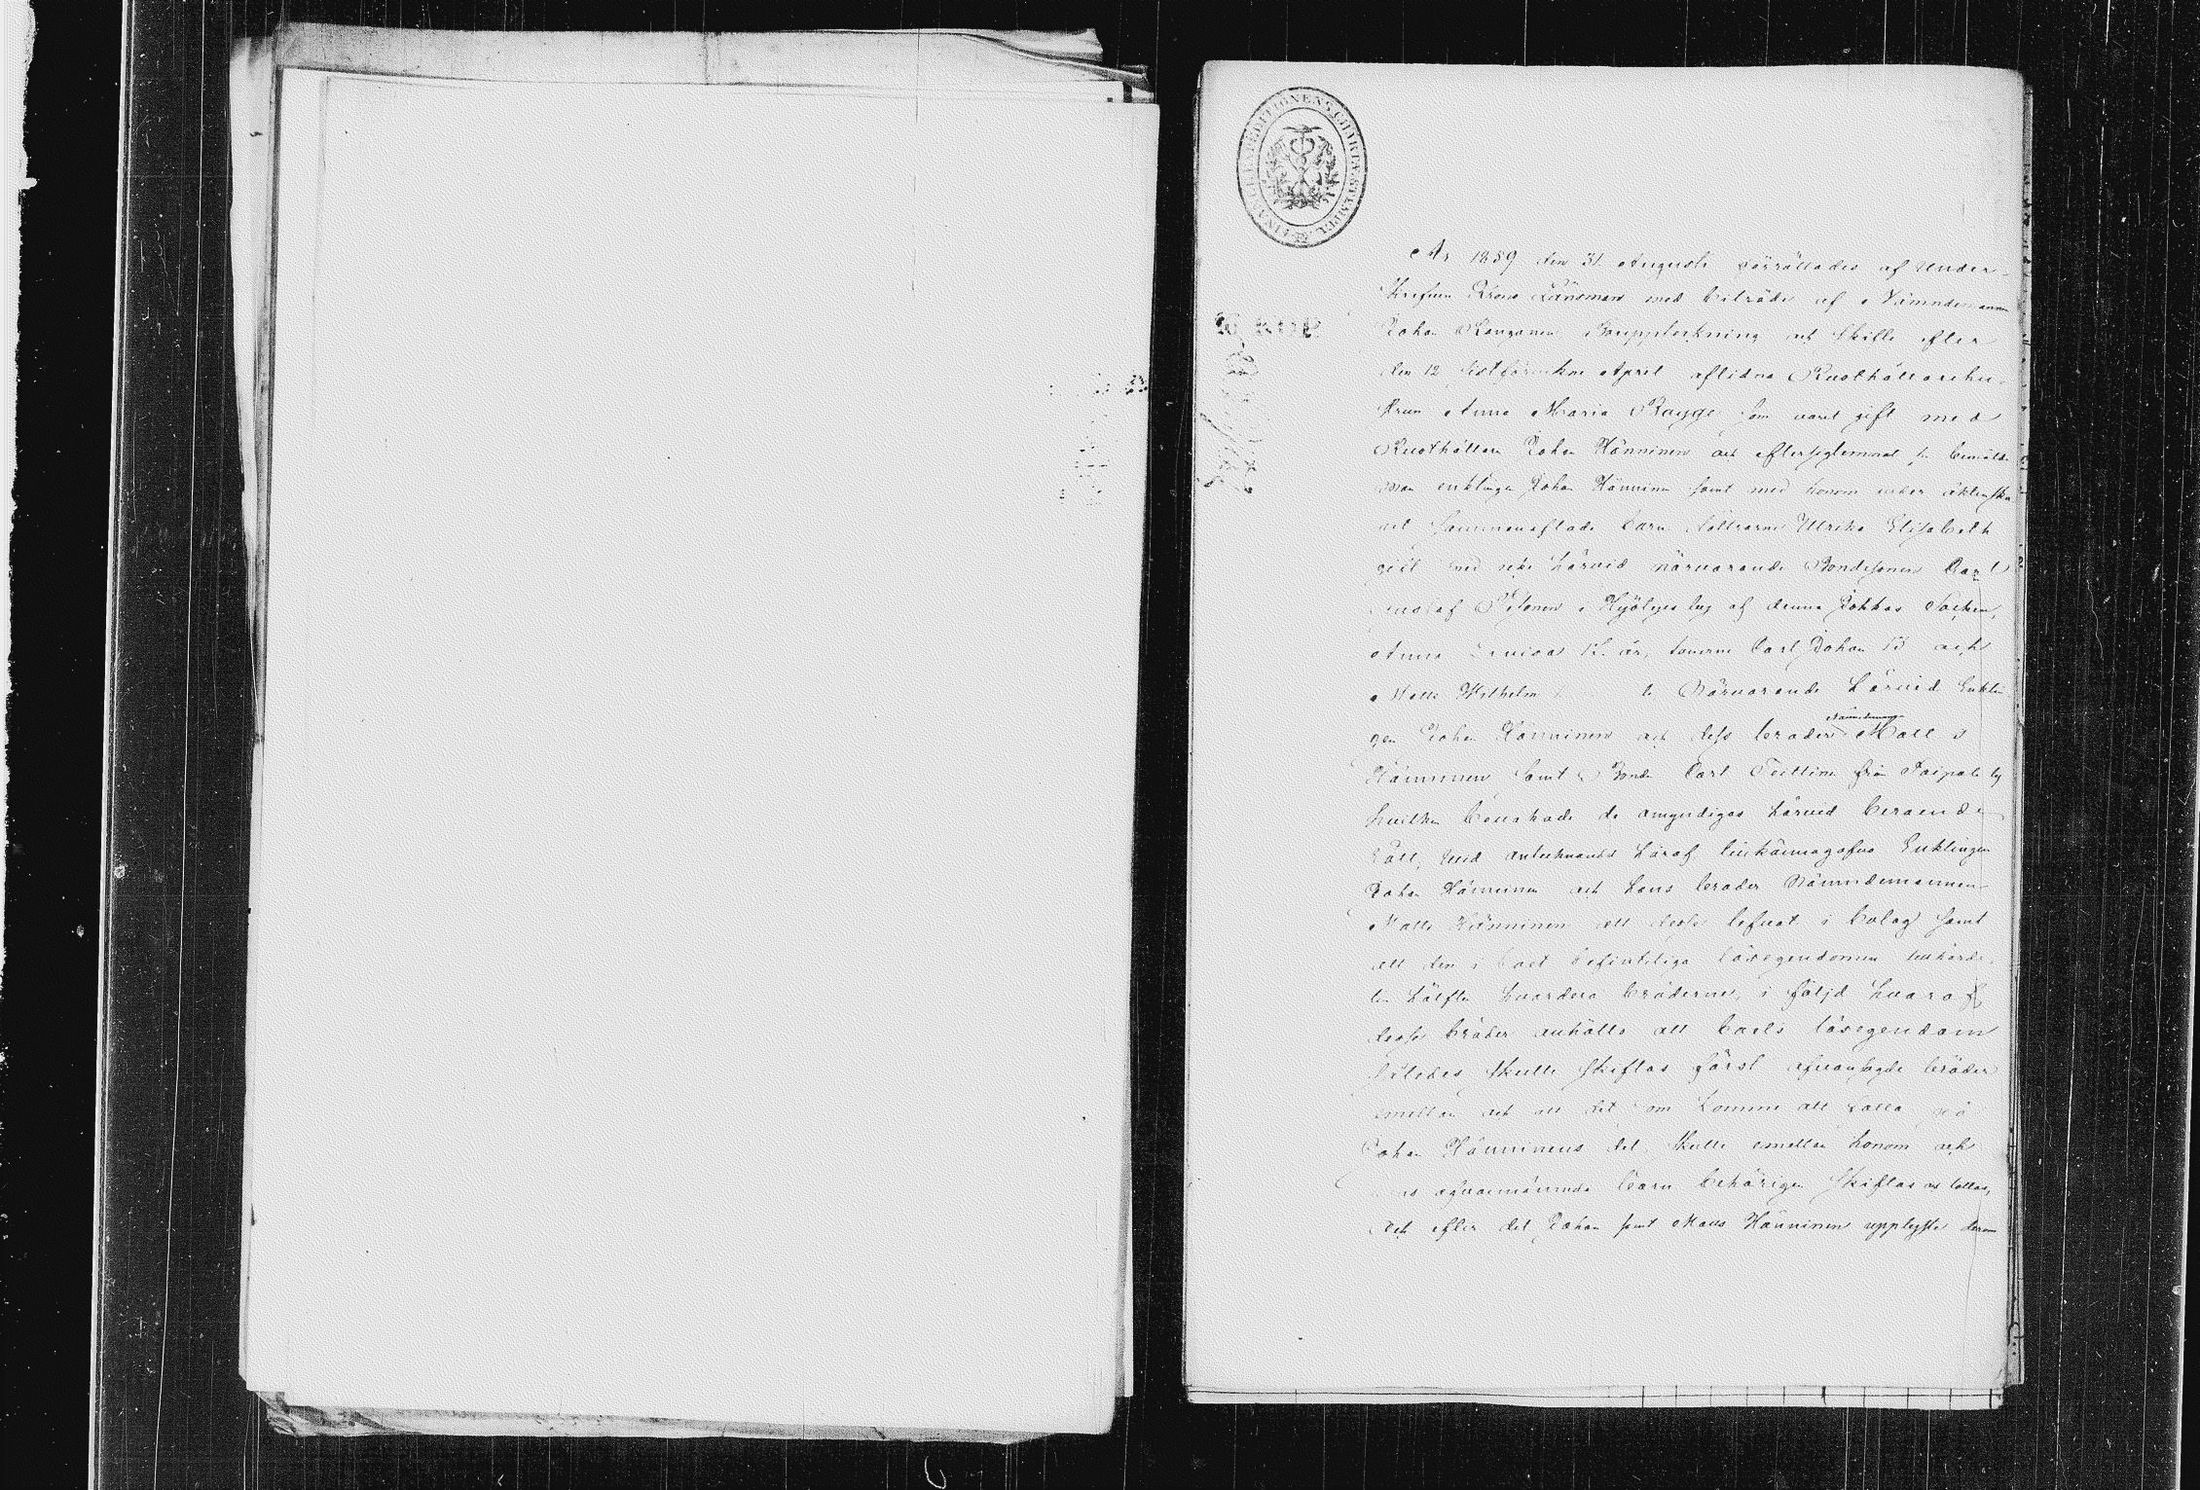 FINANCIE EXPEDITIONENS CHARTÆ STEMPEL
År 1859 den 31 Augusti förrättades af Under-
skrifven Krono Länsman med biträde af Nämndemannen
Johan Kouganen Bouppteckning och skifte efter
den 12 sistförvikne April aflidna Rusthållarehu-
strun Anna Maria Bagge som varit gift med
Rusthållare Johan Hänninen och efterseglemnat sin bemälde
man enklingen Johan Hänninen samt med honom under äktenska
pet sammanaflade barn döttrarne Ulrika Elisabeth
gift med sin härvid närvarande Bondesonen Carl
Gustaf i by af denna Jokkas Socken,
Anna Lovisa 12 år, sönerne Carl Johan 13 och
Matts Wilhelm Närvarande härvid Enklin
gen Johan Hänninen och dess broder Nämndeman Matts
Hänninen samt Bonden Carl Teittinen från Taipale by
hvilken bevakade de omyndigas härvid beroende
rätt, vid anledning häraf tillkännagåfvo Enklingen
Johan Hänninen och hans broder Nämndemannen
Matts Hänninen att desse lefvat i bolag samt
att den i boet befintliga lösegendomen tillhörde
till hälften hvardera bröderne, i följd hvaraf
desse bröder anhöllo att boets lösegendom
således skulle skiftas först ofvansagde bröder
emellan och att det som komme att falla på
Johan Hänninens del skulle emellan honom och
hans ofvannämnde barn behörigen skiftas och lottas,
Och efter det Johan samt Matts Hänninen upplyste derom